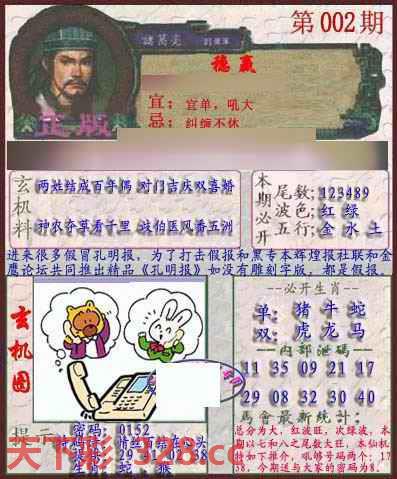 第002期
諸葛亮
稳赢
正版
宜:宜单,吼大
忌:纠缠不休
玄机料
两姓结成百年偶 对门吉庆双喜婚
神农夺草看千里 歧伯医风番五洲
本期必开
尾数:123489
波色:红 绿
五行:金 水 土
进来很多假冒孔明报,为了打击假报和黑专本辉煌报社联和金
鹰论坛共同推出精品《孔明报》如没有雕刻字版,都是假报。
玄机图
必开生肖
单:猪 牛 蛇
双:虎 龙 马
内部泄码
11 35 09 21 17
29 08 32 30 40
馬會最新統计:
总分为大,红波旺,次绿波,本
期以七和八之尾数大旺,本仙机
38,今期送与大家的密码为8.
提示
密码:0152
29 41 02 38
天下彩